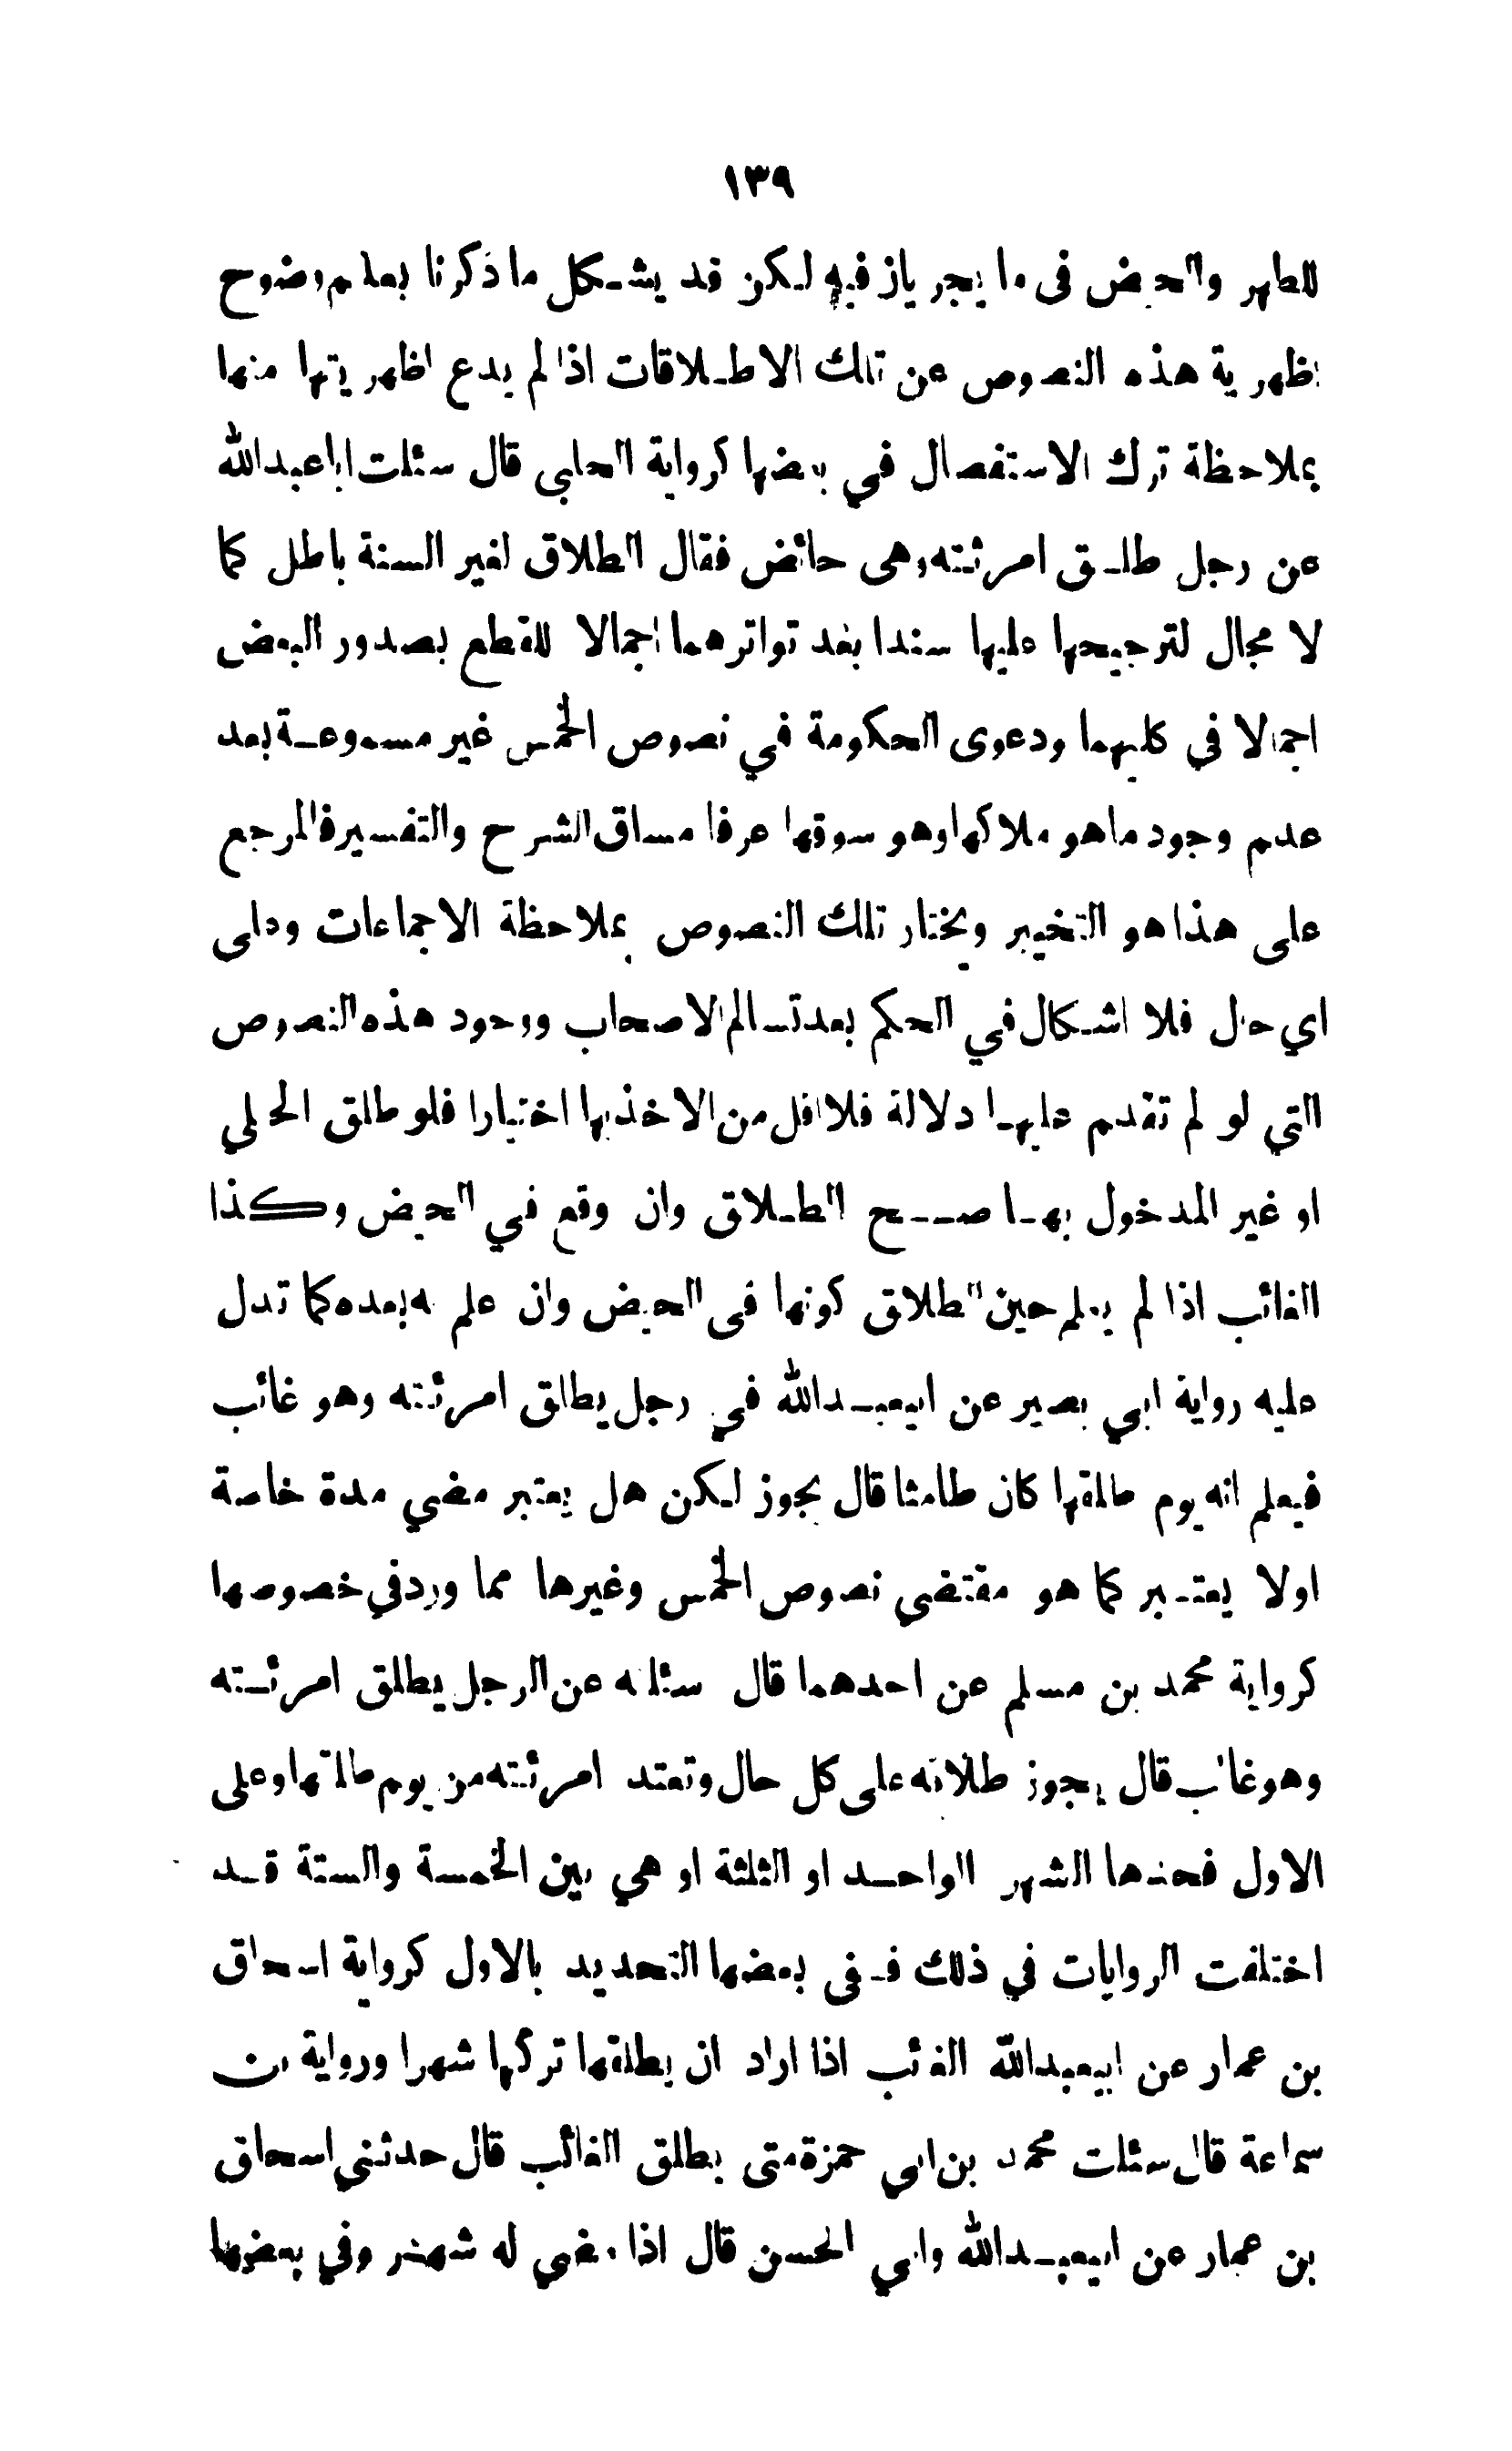 ١٣٩
للطهر والحيض في ما يجريان فيه لكن قد يشكل ما ذكرنا بعدم وضوح
اظهرية هذه النصوص عن تلك الاطلاقات اذا لم يدع اظهريتها منها
بملاحظة ترك الاستفصال في بعضها كرواية الحلبي قال سئلت اباعبدالله
عن رجل طلق امرئته وهي حائض فقال الطلاق لغير السنة باطل كما
لا مجال لترجيحها عليها سندا بعد تواترهما اجمالا للقطع بصدور البعض
اجمالا في كليهما ودعوى الحكومة في نصوص الخمس غير مسموعة بعد
عدم وجود ماهو ملاكها وهو سوقها عرفا مساق الشرح والتفسير فالمرجع
على هذا هو التخيير ويختار تلك النصوص بملاحظة الاجماعات وعلى
اي حال فلا اشكال في الحكم بعد تسالم الاصحاب ووجود هذه النصوص
التي لو لم تقدم عليها دلالة فلا اقل من الاخذ بها اختيارا فلو طلق الحبلي
او غير المدخول بها صح الطلاق وان وقع في الحيض وكذا
الغائب اذا لم يعلم حين الطلاق كونها في الحيض وان علم به بعده كما تدل
عليه رواية ابي بصير عن ابيعبدالله في رجل يطلق امرئته وهو غائب
فيعلم انه يوم طلقها كان طامثا قال يجوز لكن هل يعتبر مضي مدة خاصة
اولا يعتبر كما هو مقتضي نصوص الخمس وغيرها مما ورد في خصوصها
كرواية محمد بن مسلم عن احدهما قال سئلته عن الرجل يطلق امرئته
وهو غائب قال يجوز طلاقه على كل حال وتعتد امرئته من يوم طلقها وعلى
الاول فحدها الشهر الواحد او الثلثة او هي بين الخمسة والستة قد
اختلفت الروايات في ذلك ففي بعضها التحديد بالاول كرواية اسحاق
بن عمار عن ابيعبدالله الغائب اذا اراد ان يطلقها تركها شهرا ورواية ابن
سماعة قال سئلت محمد بن ابي حمزة متى يطلق الغائب قال حدثني اسحاق
بن عمار عن ابيعبدالله وابي الحسن قال اذا مضي له شهر وفي بعضها